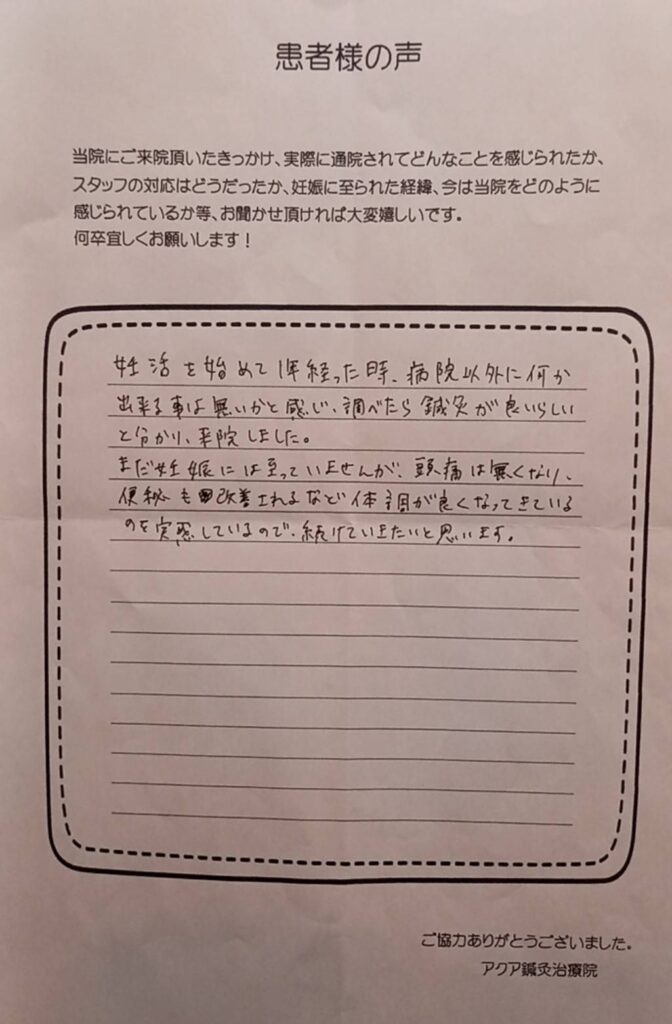 患者様の声
当院にご来院頂いたきっかけ、実際に通院されてどんなことを感じられたか、
スタッフの対応はどうだったか、妊娠に至られた経緯、今は当院をどのように
感じられているか等、お聞かせ頂ければ大変嬉しいです。
何卒宜しくお願いします！
妊活を始めて1年経った時、病院以外に何か
出来る事は無いかと感じ、調べたら鍼灸が良いらしい
と分かり、来院しました。
まだ妊娠には至っていませんが、頭痛は無くなり、
便秘も改善されるなど体調が良くなってきている
のを実感しているので、続けていきたいと思います。
ご協力ありがとうございました。
アクア鍼灸治療院